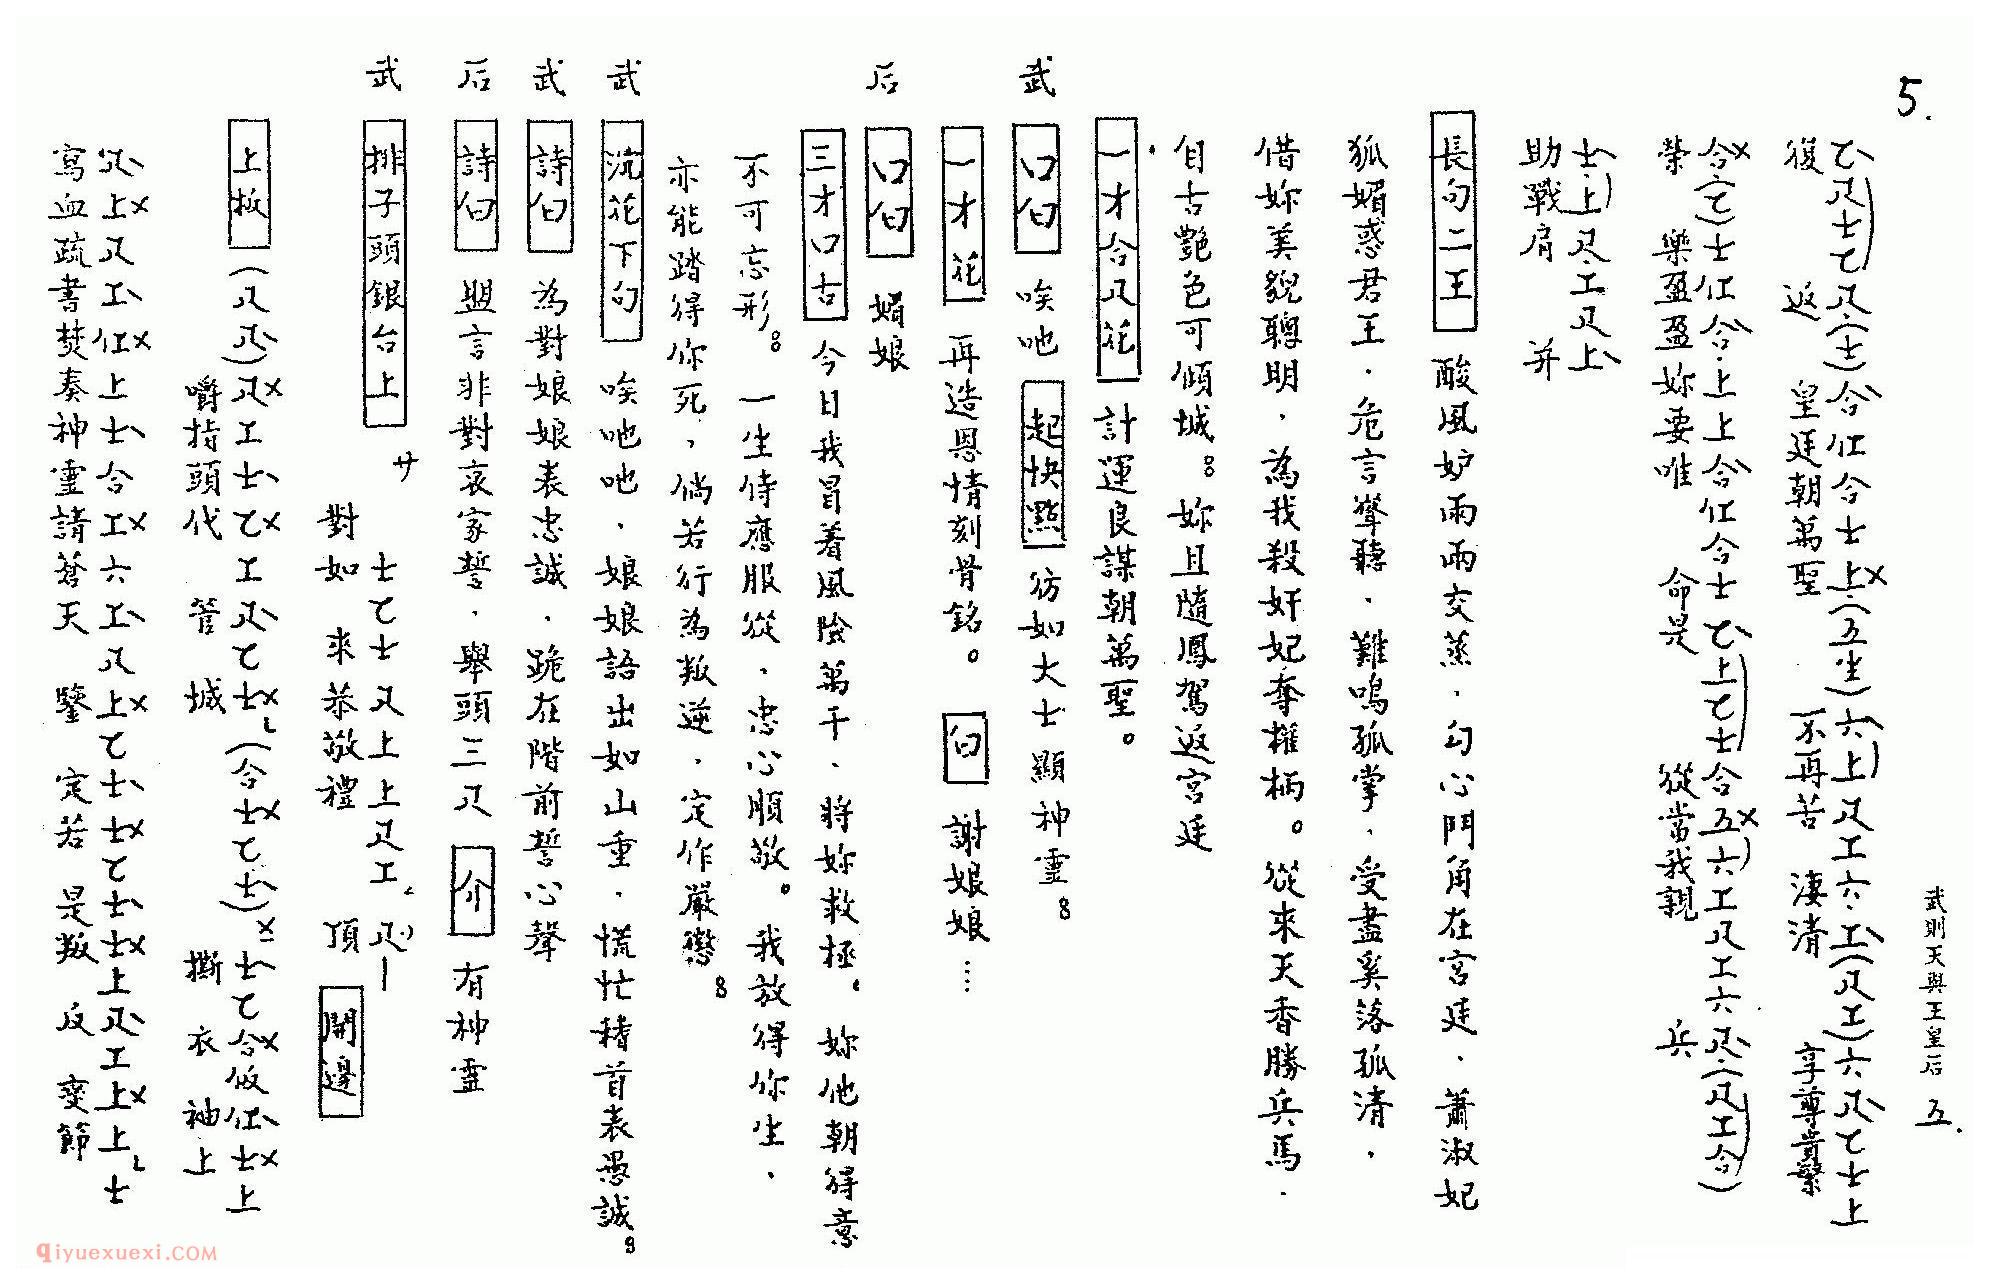 5.
武則天與王皇后 五.
乙、尺士乙尺、(士)合仜合士上.(五生)六、上尺工六.工、(尺工)六尺、乙士上
復 返 皇廷朝萬聖 不再苦 淒清 享尊貴繁
合(乙)士仜合.上上合仜合士乙、上乙士合五六工尺工六尺、(尺工合)
榮 樂盈盈妳要唯 命是 從當我親 兵
士、上尺.工尺上、
助戰肩 并
長句二王 酸風妒雨兩交蒸.勾心鬥角在宮廷.蕭淑妃
狐媚惑君王.危言聳聽.難鳴孤掌.受盡奚落孤清.
借妳美貌聰明.為我殺奸妃奪權柄。從來天香勝兵馬.
自古艷色可傾城。妳且隨鳳駕返宮廷
一才合尺花 計運良謀朝萬聖。
武 口白 唉吔 起快點 彷如大士顯神靈
一才花 再造恩情刻骨銘。 白 謝娘娘…
后 口白 媚娘
三才口古 今日我冒着風險萬千.將妳救極。妳他朝得意
不可忘形。一生侍應服從.忠心順敬。我放得你生.
亦能踏得你死.倘若行為叛逆.定作嚴懲
武 滾花下句 唉吔吔.娘娘語出如山重.慌忙稽首表愚誠
武 詩白 為對娘娘表忠誠.跪在階前誓心聲
后 詩白 盟言非對哀家誓.舉頭三尺 介 有神靈
武 排子頭銀台上 サ 士乙士尺上上尺工尺
對如 來恭敬禮 頂 開邊
上板 (尺尺)尺工士乙工尺乙士(合士乙士)士乙合仮仜士上
嚼指頭代 菅 城 撕 衣 袖上
尺上尺工仜上士合工六工尺上乙士士乙士士上尺工上上士
寫血疏書焚奏神靈請蒼天 鑒 定若 是叛 反 變節
qiyuexuexi.COM